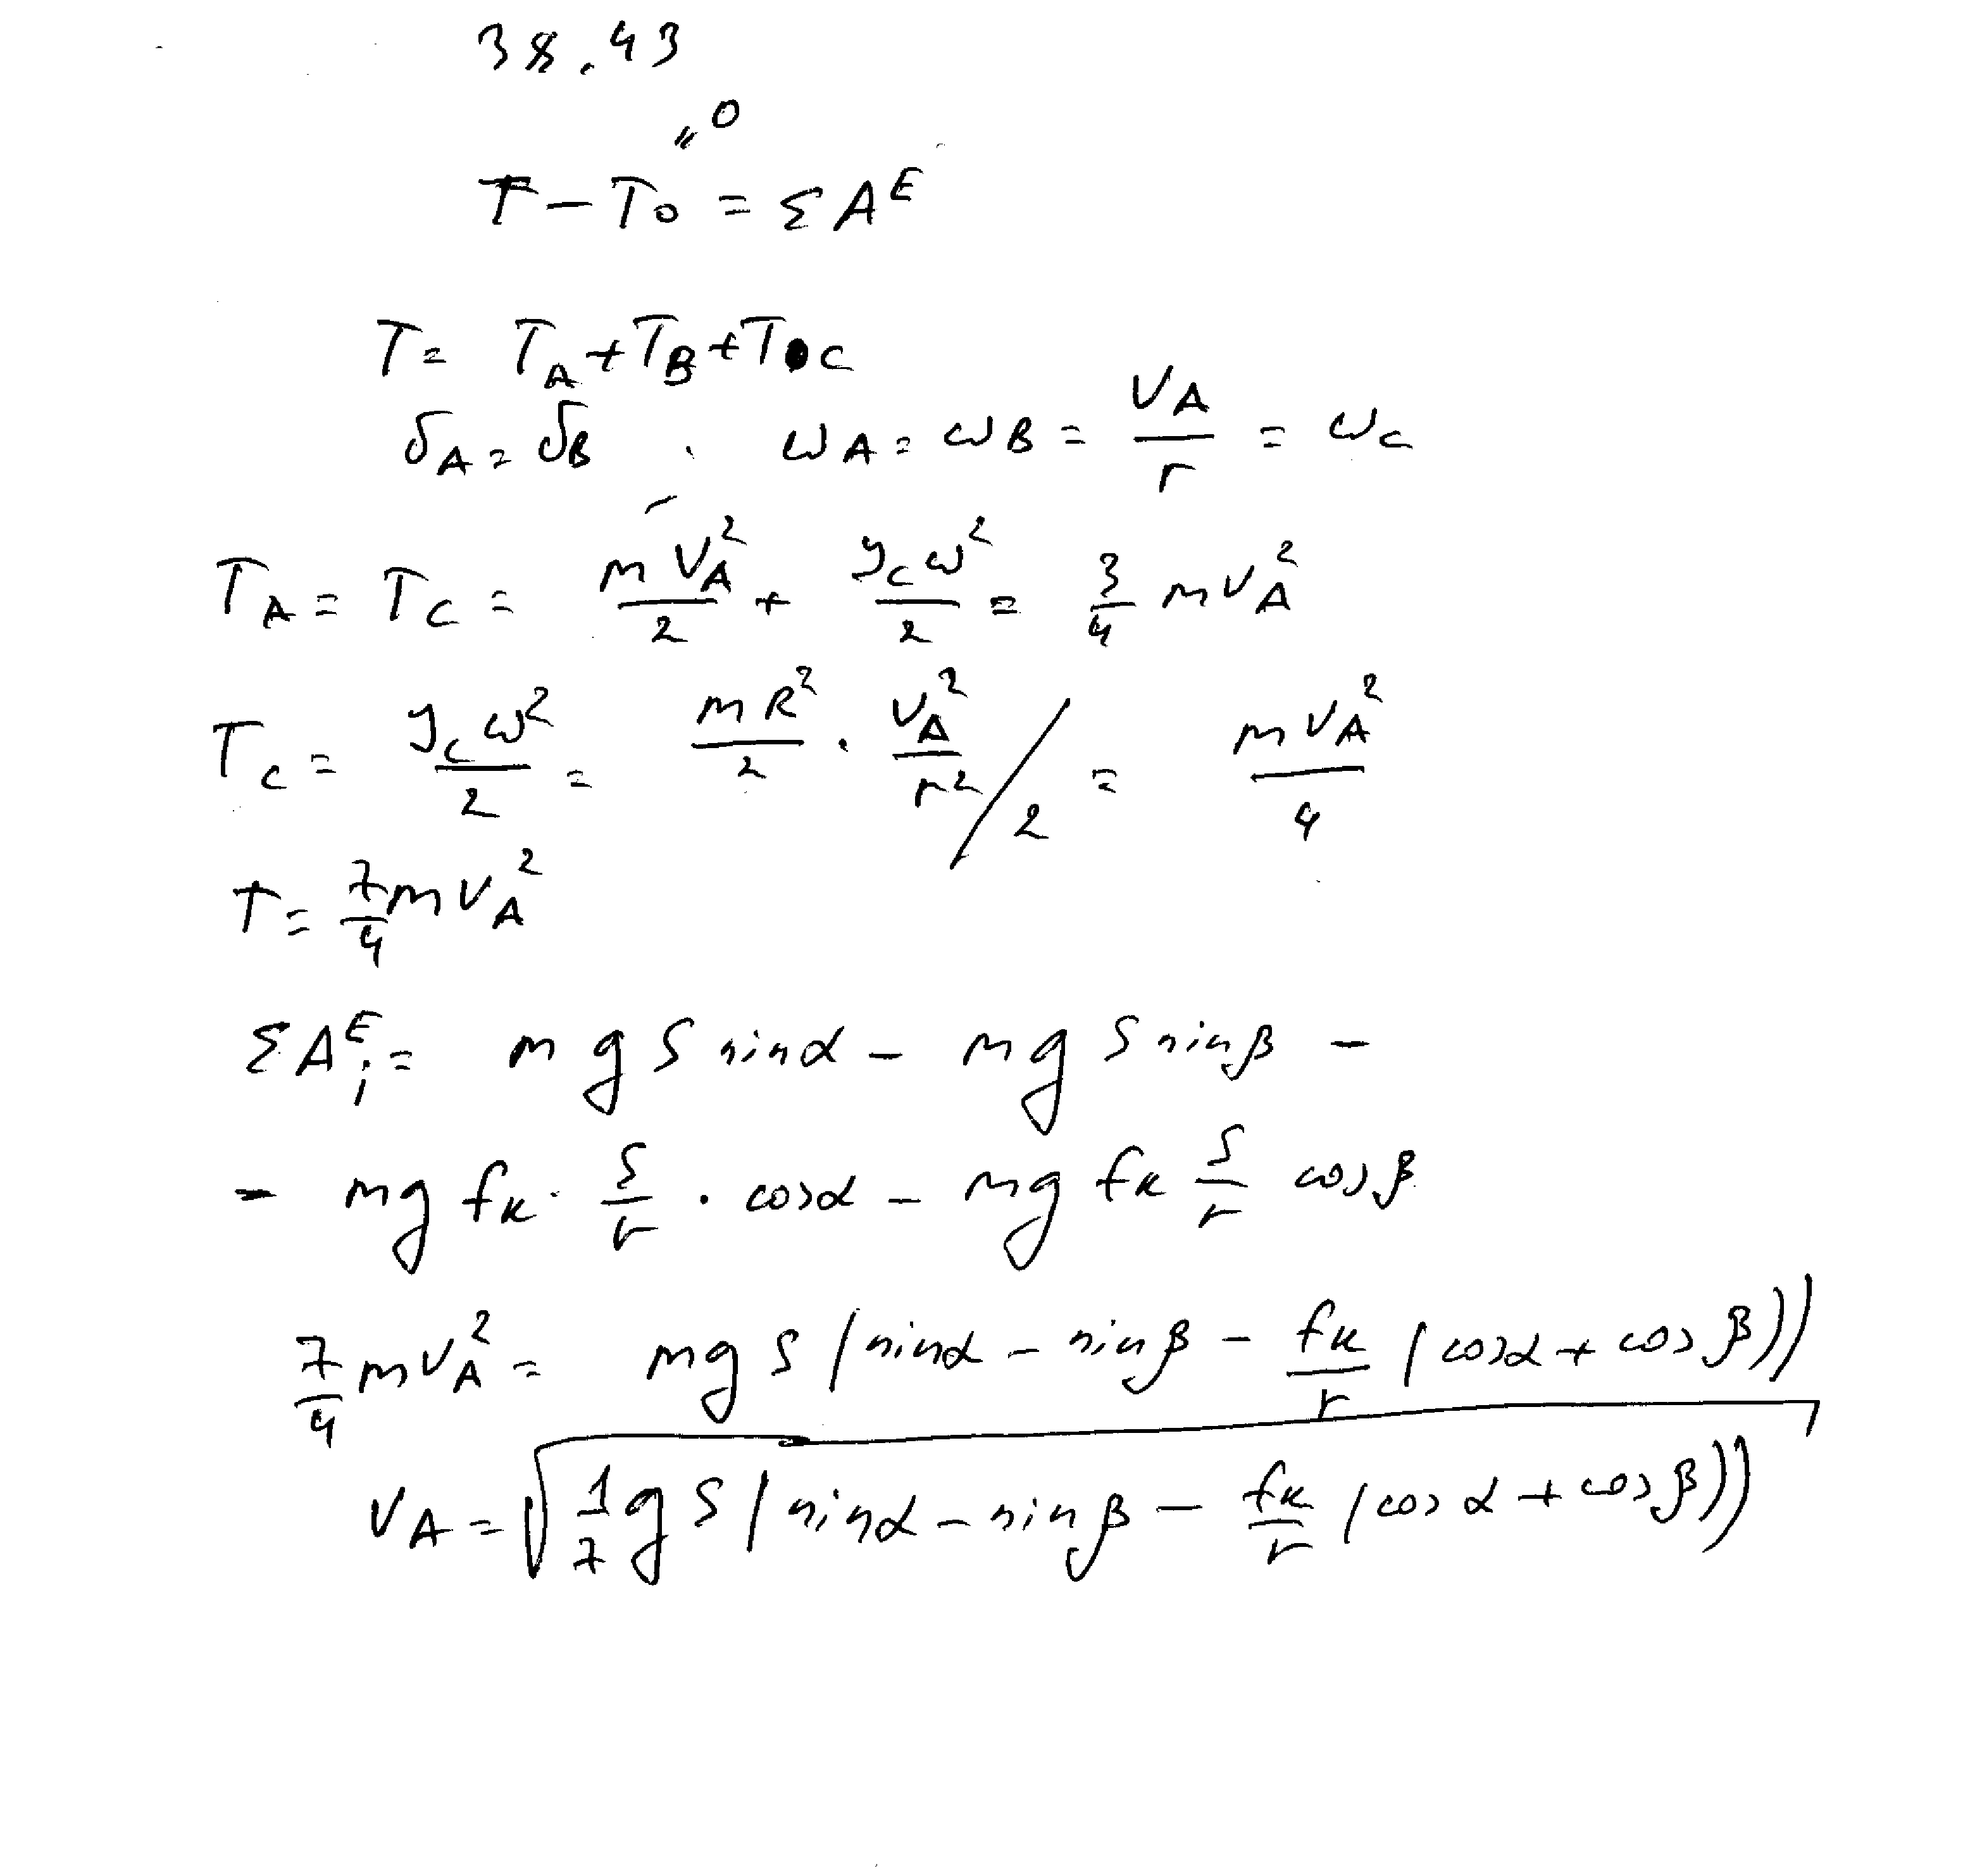 38.43
"0
T - T₀ = Σ A^E
T = T_A + T_B + T_C
δ_A = δ_B , ω_A = ω_B = V_A / r = ω_C
T_A = T_C = m V_A² / 2 + y_C ω² / 2 = 3/4 m V_A²
T_C = y_C ω² / 2 = m R² / 2 · V_A² / r² / 2 = m V_A² / 4
T = 7/4 m V_A²
Σ A_i^E = m g S sin α - m g S sin β -
- m g f_к · S / r · cos α - m g f_к S / r cos β
7/4 m V_A² = m g S (sin α - sin β - f_к / r (cos α + cos β))
V_A = √(1/7 g S (sin α - sin β - f_к / r (cos α + cos β)))